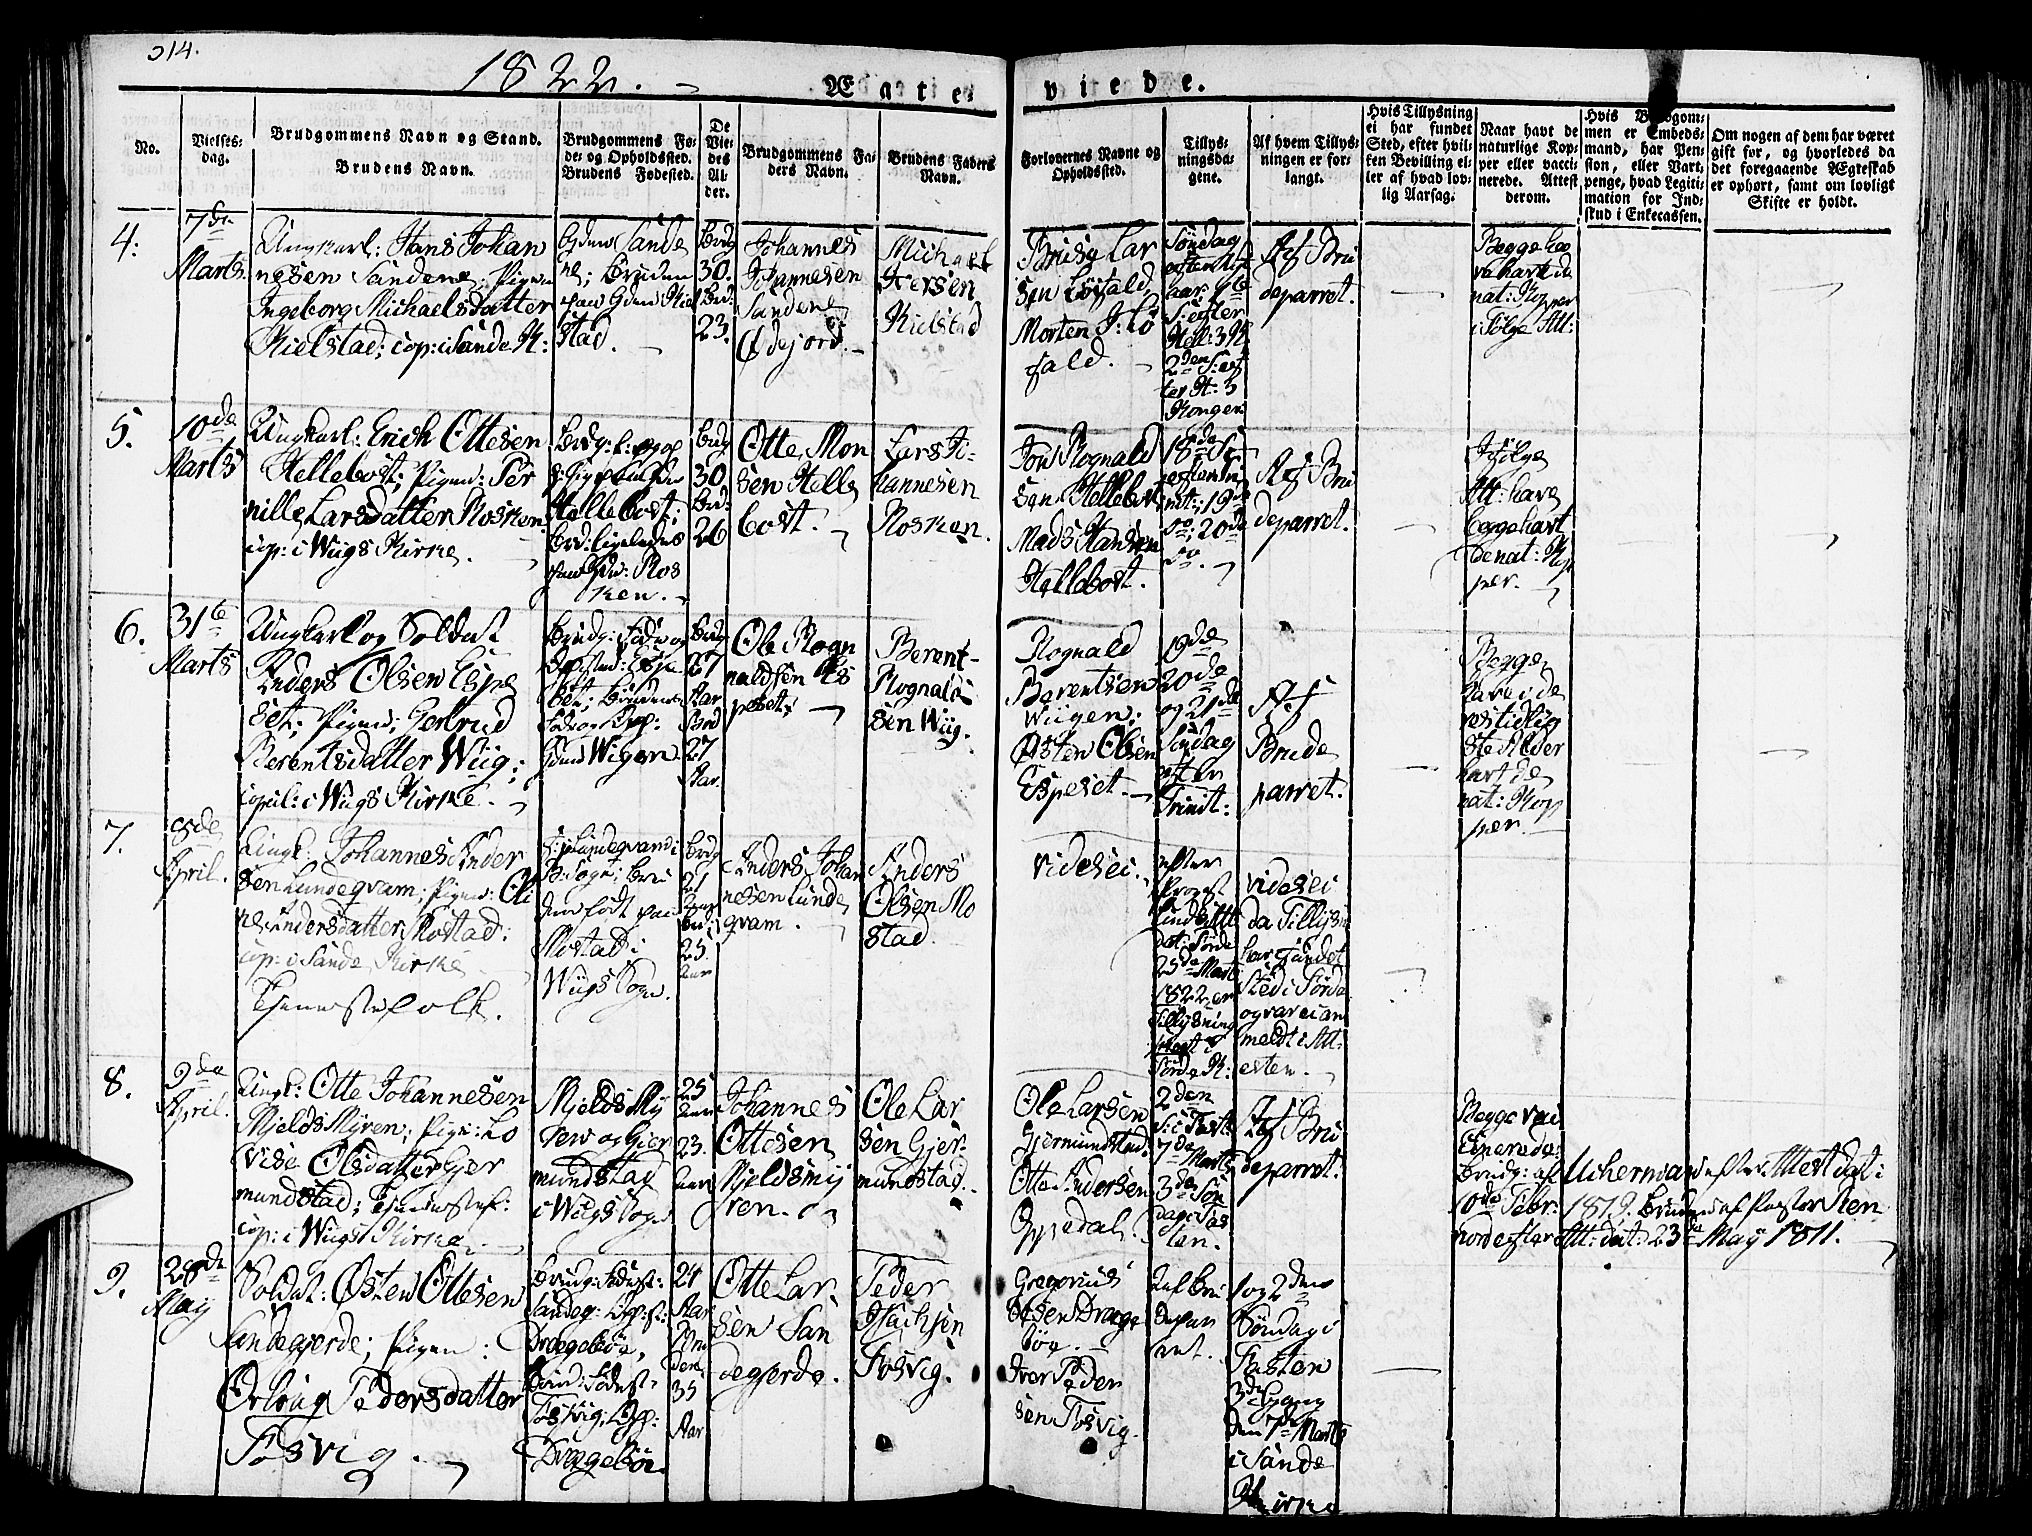 314.
1822. Ægte viede.
No.
Vielses-
dag.
Brudgommens Navn og Stand.
Brudens Navn.
Brudgommens Fø-
de- og Opholdssted.
Brudens Fødested.
De
Vie-
des
Al-
der.
Brudgommens Fa-
ders Navn.
Brudens Faders
Navn.
Forlovernes Navne og
Opholdssted.
Tillys-
ningsda-
gene.
Af hvem Tillys-
ningen er for-
langt.
Hvis Tillysning
ei har fundet
Sted, efter hvil-
ken Bevilling el-
ler af hvad lov-
lig Aarsag.
Naar havt de
naturlige Kop-
per eller vacci-
nerede. Attest
derom.
Hvis Brudgom-
men er Embeds-
mand, har Pen-
sion, eller Vart-
penge, hvad Legiti-
mation for Ind-
skud i Enkecassen.
Om nogen af dem har været
gift før, og hvorledes da
det foregaaende Ægteskab
er ophørt, samt om lovligt
Skifte er holdt.
4.
7de
Marts.
Ungkarl: Hans Johan
nesen Sandene; Pigen
Ingeborg Michaelsdatter
Kielstad; cop: i Sande K:
Gdm Sande
ne; Bruden
paa Gdm Kiel
stad.
Brdg
30.
Brd:
23.
Johannes
Johannesen
Sandene
Ødejord.
Michael
Iversen
Kielstad
Lar
sen Løfald
Morten J: Lö
fald.
Søndag
2den S: ef
ter H: 3
Konger
Af Bru
deparret.
Begge ha
ve havt de
nat: Kopper
i Følge Att:
5.
10de
Marts
Ungkarl: Erich Ottesen
Hellebost; Pigen: Per
nille Larsdatter Rosken
cop: i Wiigs Kirke.
Hellebost;
Brd: ligeledes
paa Gdn: Ros
ken.
Brdg
30
Brd:
26
Otte Mon
sen Helle
bost.
Lars Jo-
hannesen
Rosken.
Jon Rognald
sen Hellebost
Mads Hansen
Hellebost.
18de S:
efter Tri
nit: 19de
do; 20de
do.
Af Bru
deparret.
Ifølge
Att: have
begge havt
de nat: Kop
per.
6.
31te
Marts
Ungkarl og Soldat
Anders Olsen Espe
set; Pigen; Gertrud
Berentsdatter Wiig;
copul: i Wiigs Kirke.
Brudg: Føde og
Op.sted: Espe
set; Brudens
Føde og Op:
Gdm Wigen
Brdg
27
Aar
Brd
27
Aar.
Ole Rogn
naldsen Es
peset;
Berent
Rognald
sen Wiig.
Rognald
Berentsen
Wiigen;
Østen Olsen
Espeset.
19de
20de
og 21de
Søndag
efter
Trinit:
Af
Brude
parret.
Begge
have i de
res tidlig
ste Alder
havt de
nat: Kop
per.
7.
8de
April.
Ungk: Johannes Ander
sen Lundeqvam; Pigen: Oli
ne Andersdatter Mostad;
cop: i Sande Kirke
Tjenestefolk.
F: paa Lundeqvam i
Sogn; Bru
den født paa
Mostad i
Wiigs Sogn.
Brdg
21
Aar
Brd:
25
Aar
Anders Johan
nesen Lunde
qvam.
Anders
Olsen Mo
stad.
vides ei.
efter
Provst
Lunds Att:
dat: Førde
25de Marts
1822 er
Tillysning
skeet i
Førde K:
vides ei
da Tillysn:
har fundet
Sted i Førde
og var ei an
meldt i Att:
esten.
8.
9de
April.
Ungk: Otte Johannesen
Mjelds Myren; Pige: Lo
vise Olsdatter Gjer
mundstad; Tjenestef:
cop: i Wiigs Kirke
Mjelds My
ren og Gjer
mundstad
i Wiigs Sogn
25
Aar
23.
Aar
Johannes
Ottesen
Mjeldsmy
ren.
Ole Lar
sen Gjer-
mundstad.
Ole Larsen
Gjermundstad.
Otte Andersen
Oppedal.
2den
S: i Fast:
7de Marts
3de Søn
dag i Fas
ten.
Af Bru
deparret.
Begge vac
cinerede:
Brudg: af Uchermann efter Attest dat:
10de Febr: 1819. Bruden af Pastor Ren
nord efter Att: dat: 23de May 1811.
9.
28de
May
Soldat: Østen Ottesen
Sandegjerde; Pigen:
Pedersdatter
Fosvig.
Brudg: Fødest:
Sandeg: Op.st:
Drægebøe,
Brud: Fødest:
Fosvig; Op:
Drægebøe.
24
Aar
Bru
den
35
Aar
Otte Lar-
sen San
degjerde.
Peder
Isachsen
Fosvig.
Gregorius
Olsen Dræge
bøe.
Iver Peder
sen Fosvig.
Af Bru
depar
ret.
1 og 2den
Søndag i
Fasten
3de Gang
den 7de Marts
i Sande
Kirke